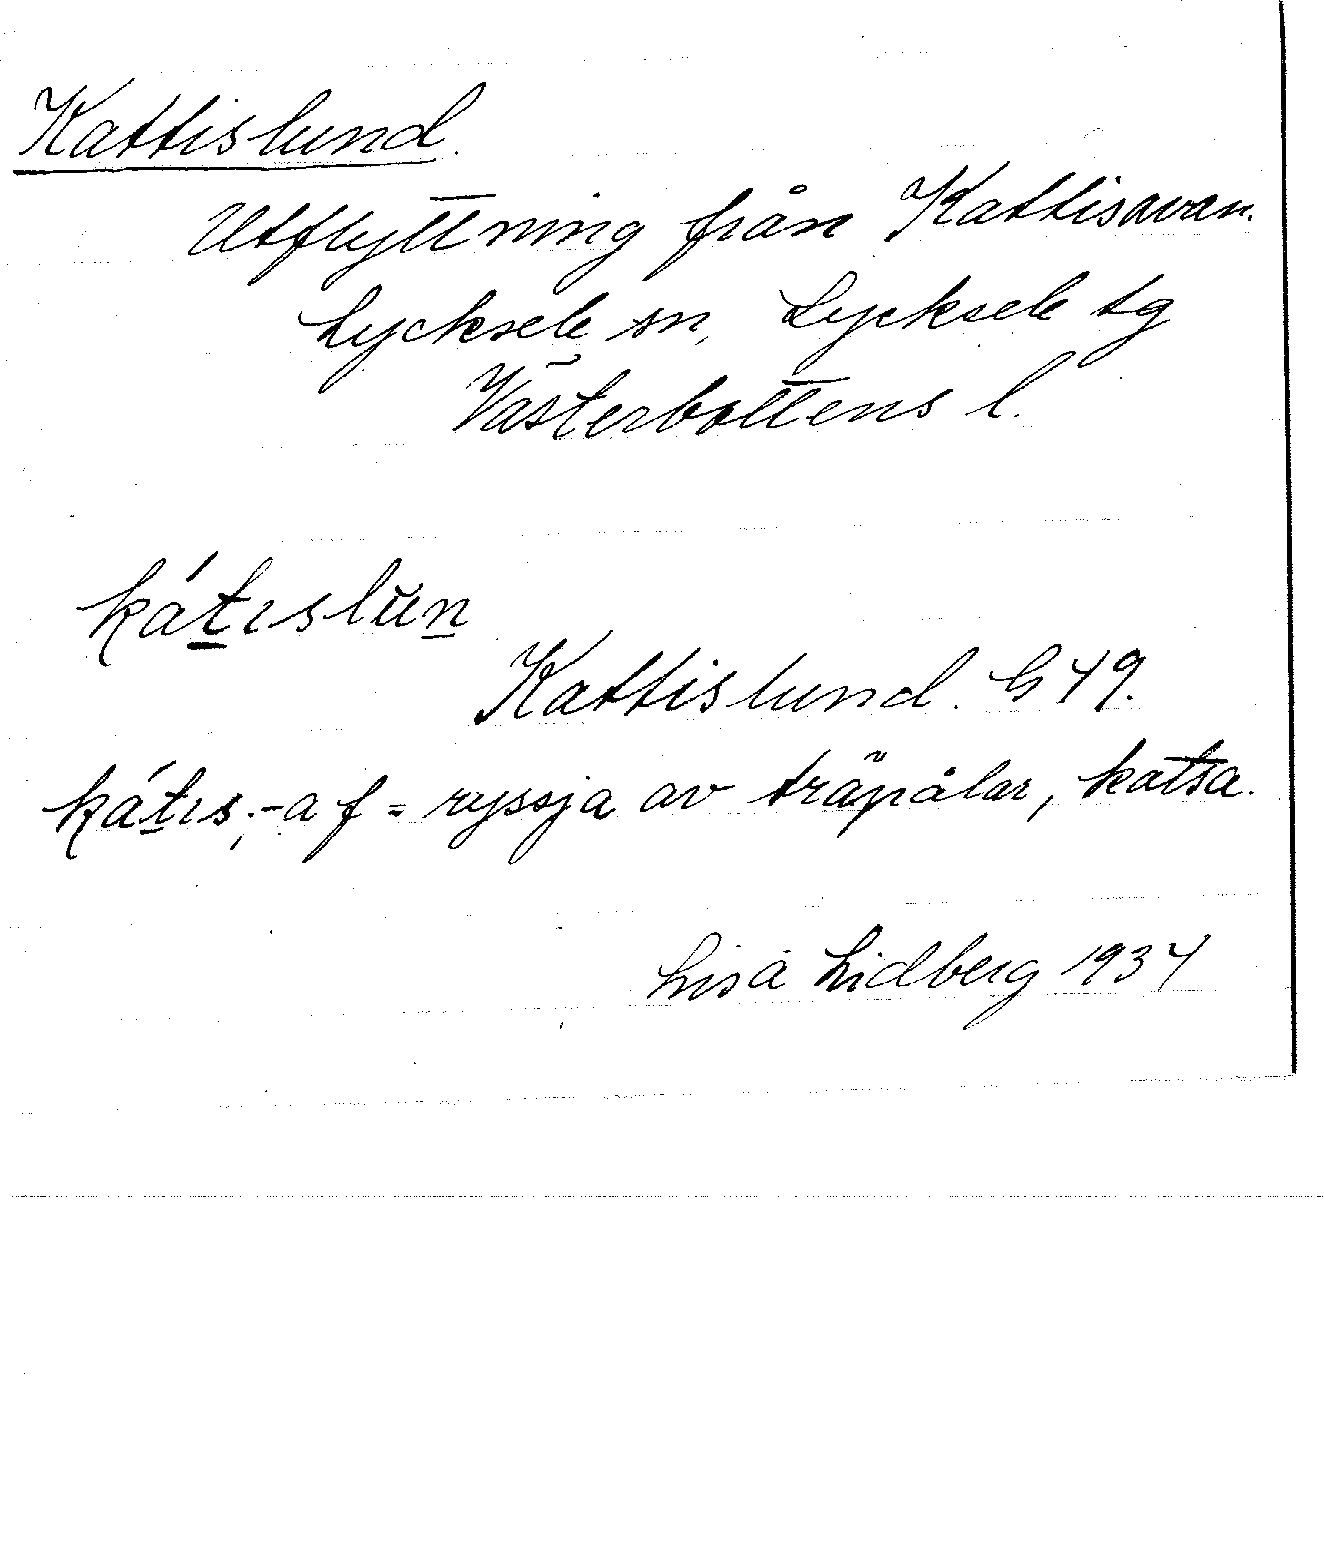 Kattislund.
Utflyttning från Kattisavan.
Lycksele sn, Lycksele tg
Västerbottens l.
kátıslun
Kattislund. G 49.
kátıs; -a f = ryssja av träpålar, katsa.
Lisa Lidberg 1934